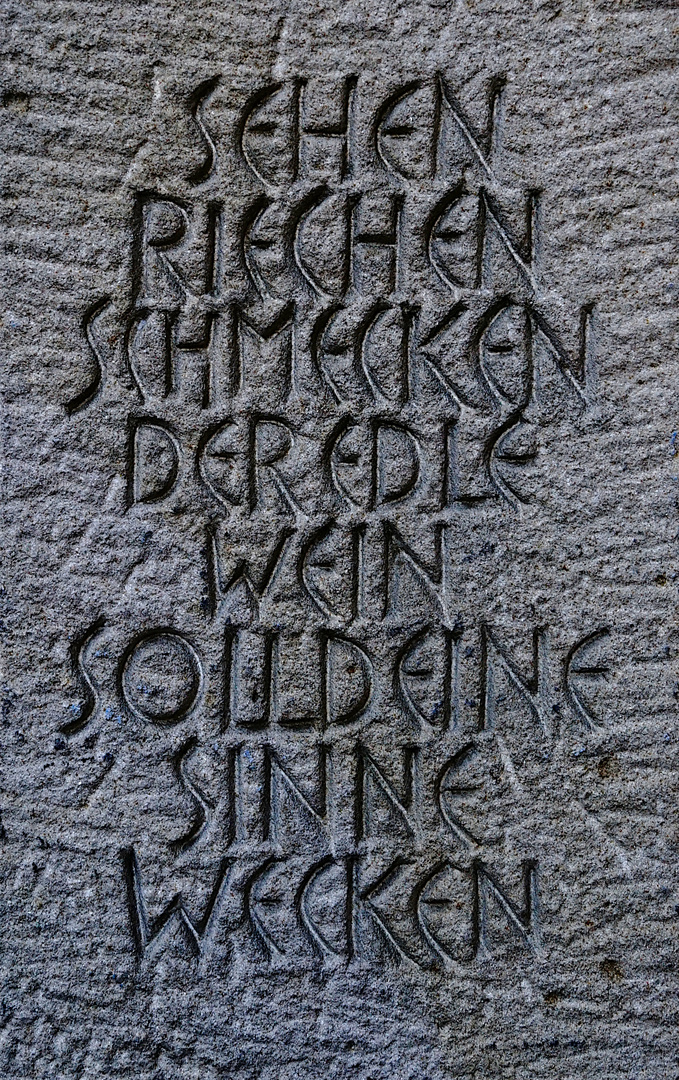 SEHEN
RIECHEN
SCHMECKEN
DER EDLE
WEIN
SOLL DEINE
SINNE
WECKEN